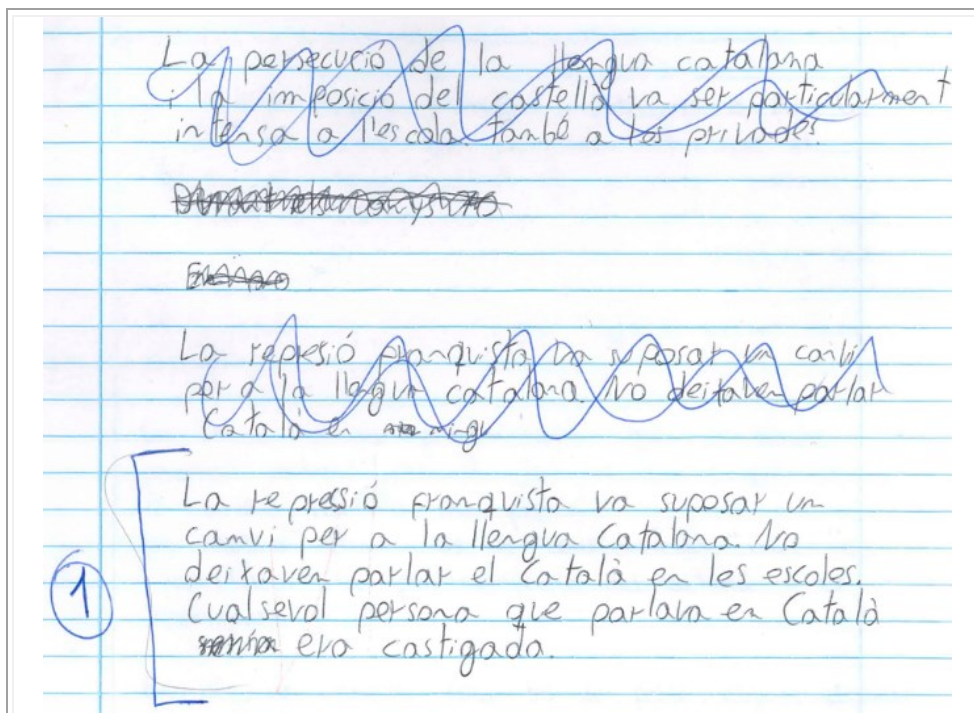 La persecució de la llengua catalana
i la imposició del castellà va ser particularment
intensa a l'escola. també a les privades.
La represió franquista va suposar un canvi
per a la llengua catalana. No deixaven parlar
Català en
La repressió franquista va suposar un
camvi per a la llengua Catalana. No
deixaven parlar el Català en les escoles.
Cualsevol persona que parlava en Català
era castigada.
1